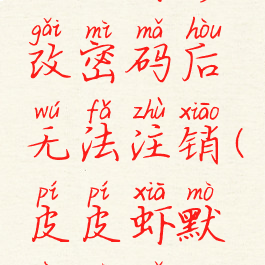 gǎi mì mǎ hòu
改密码后
wú fǎ zhù xiāo
无法注销(
pí pí xiā mò
皮皮虾默